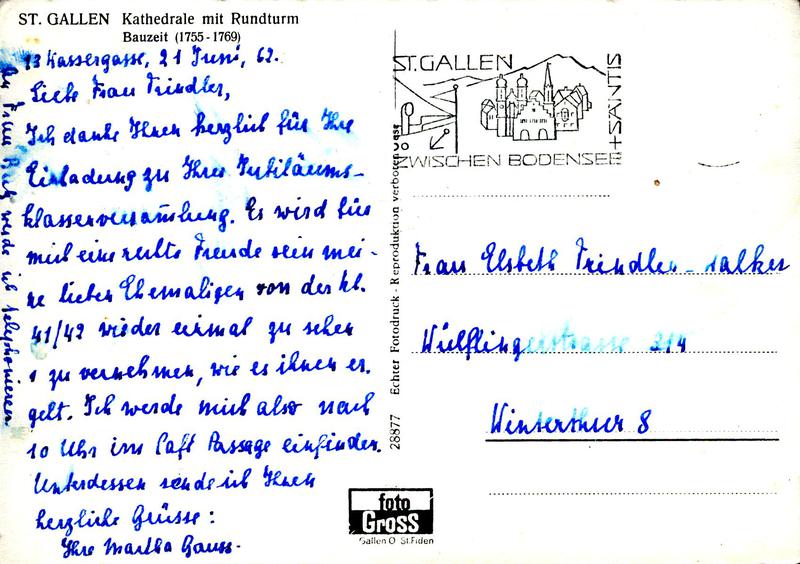 ST. GALLEN Kathedrale mit Rundturm
Bauzeit (1755-1769)
13 Kassergasse, 21 Juni, 62.
Liebe Frau Trindler,
Ich danke Ihnen herzlich für Ihre
Einladung zu Ihrer Jubiläums-
klassenversammlung. Es wird für
mich eine rechte Freude sein mei-
ne lieben Ehemaligen von der Kl.
41/42 wieder einmal zu sehen
zu vernehmen, wie es ihnen er-
gelt. Ich werde mich also nach
10 Uhr im Café Passage einfinden.
Unterdessen sende ich Ihnen
herzliche Grüsse:
Ihre Martha Gauss.
Frau werde ich telephonieren
28877 Echter Fotodruck - Reproduktion verboten
foto
Gross
Gallen O St.Fiden
ST. GALLEN
+ SÄNTIS
ZWISCHEN BODENSEE
Frau Elsbeth Trindler-
Wülflingerstrasse 214
Winterthur 8